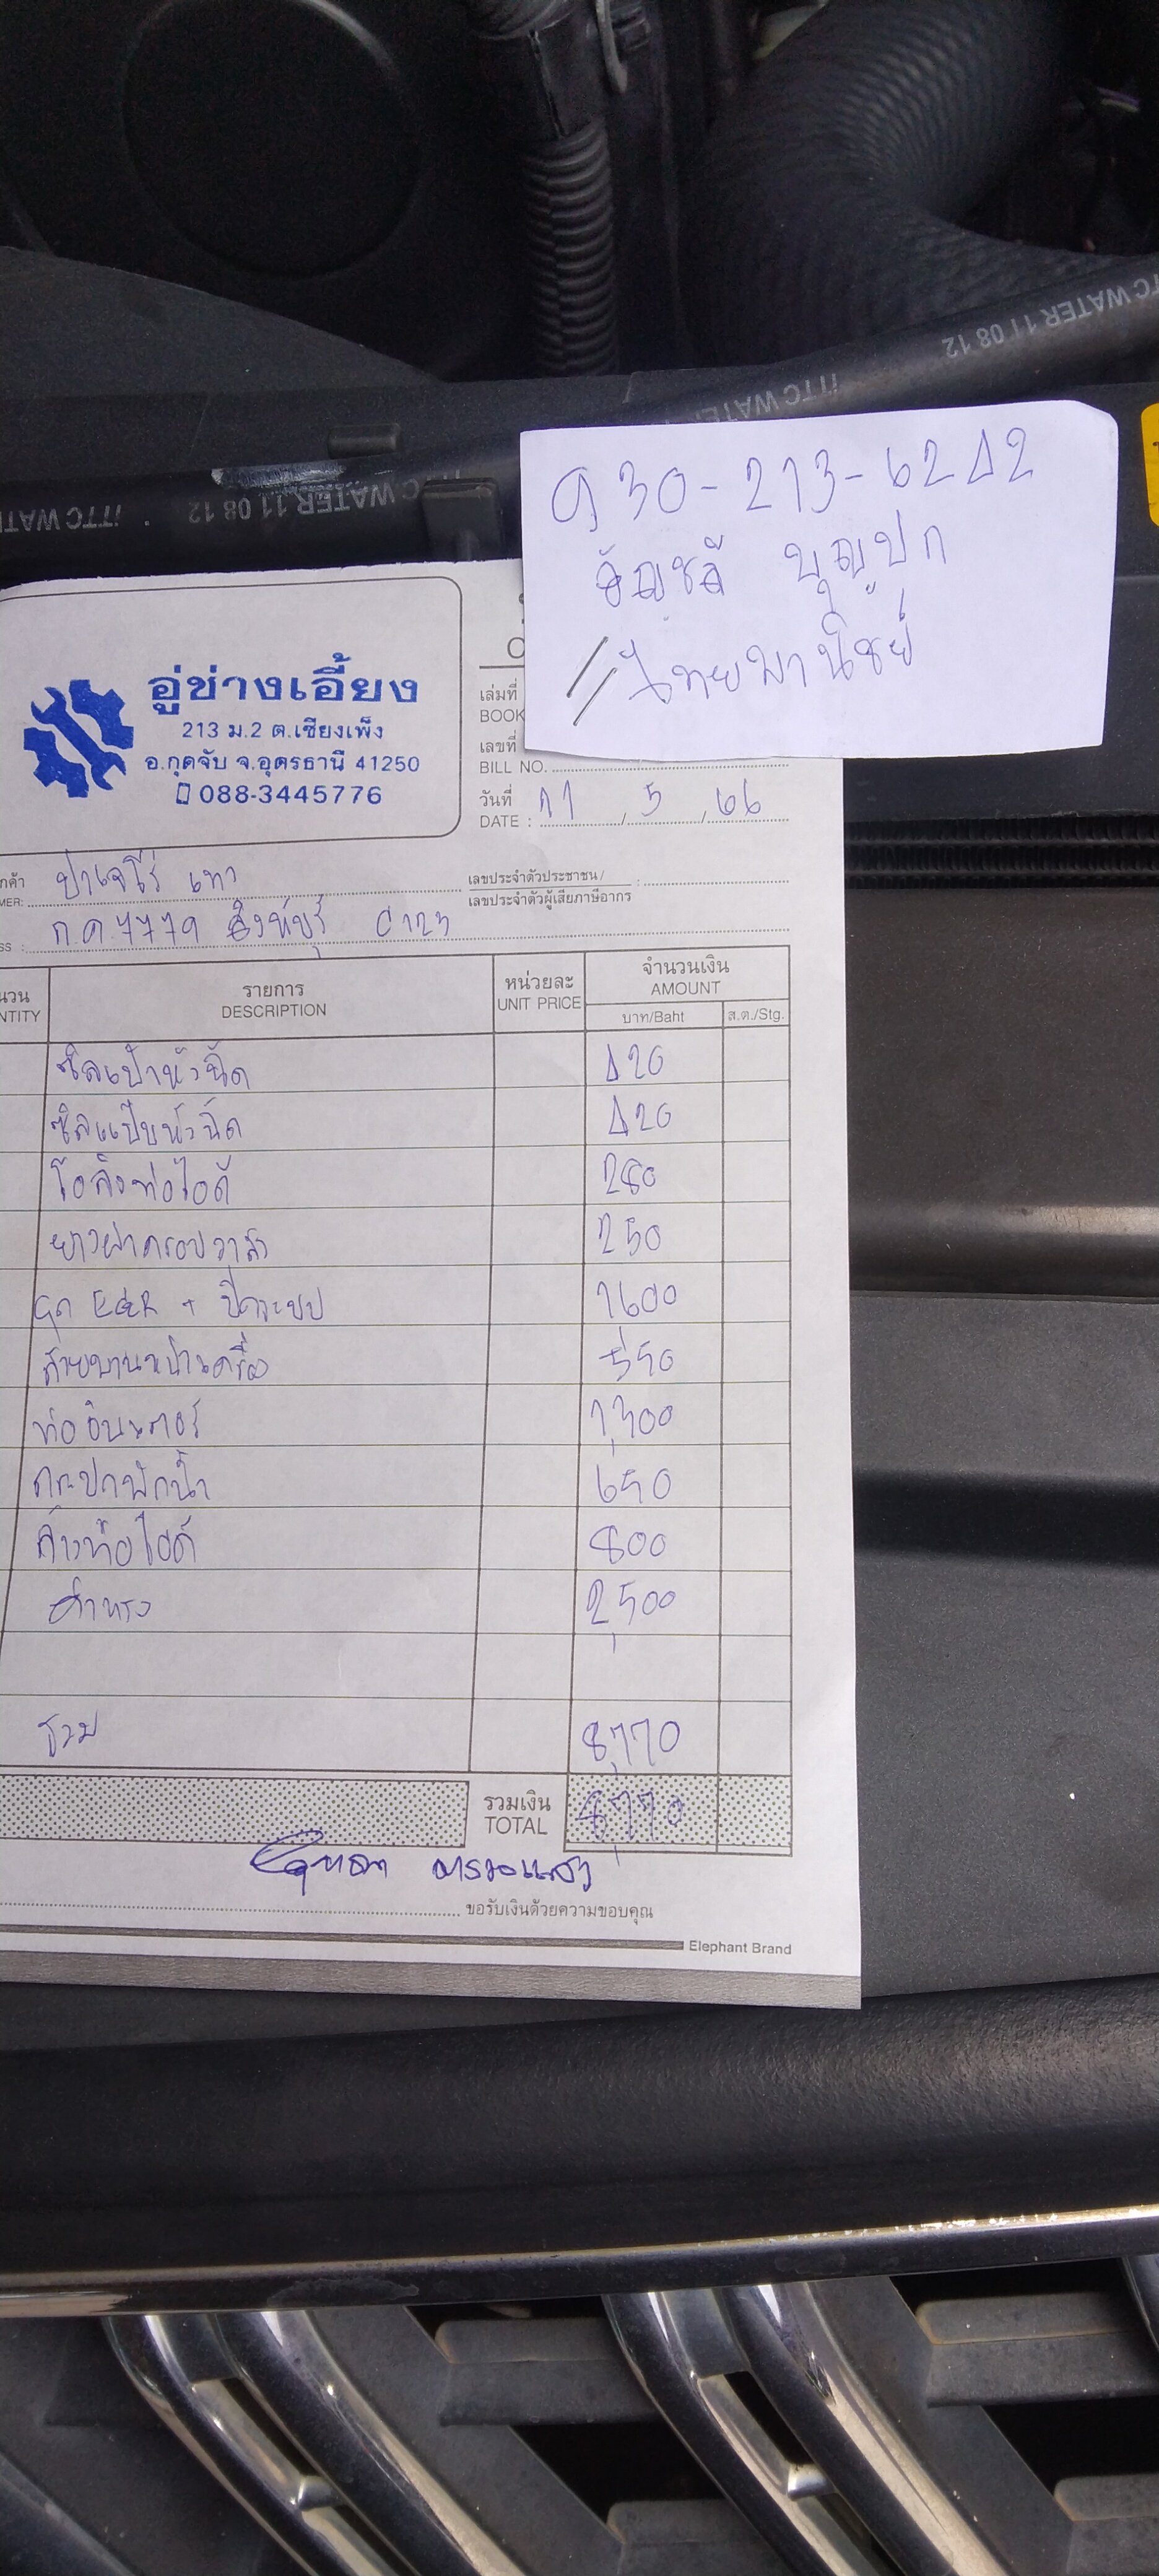 ITTC WATER 11 08 12
ITTC WATER
ITTC WATER 11 08 12
ITTC WATER
930-213-6242
อัญชลี บุญปก
//ไทยพานิชย์
อู่ช่างเอี้ยง
213 ม.2 ต.เชียงเพ็ง
อ.กุดจับ จ.อุดรธานี 41250
088-3445776
เล่มที่
BOOK
เลขที่
BILL NO.
วันที่
DATE : 11 / 5 / 66
ปาเจโร่ เทา
เลขประจำตัวประชาชน /
เลขประจำตัวผู้เสียภาษีอากร
ก.ค.7779 สิงห์บุรี
รายการ
DESCRIPTION
หน่วยละ
UNIT PRICE
จำนวนเงิน
AMOUNT
บาท/Baht
ส.ต./Stg.
ซิลเบ้าหัวฉีด 420
ซิลแป๊บหัวฉีด 420
โอลิงท่อไอดี 280
ยางฝาครอบวาล์ว 250
อุด EGR + ปิดระบบ 1600
สายพานหน้าเครื่อง 550
ท่ออินเตอร์ 1,300
กระปุกพักน้ำ 650
ล้างท่อไอดี 800
ค่าแรง 2,500
รวม 8,770
รวมเงิน
TOTAL 8,770
ตรวจแล้ว
ขอรับเงินด้วยความขอบคุณ
Elephant Brand